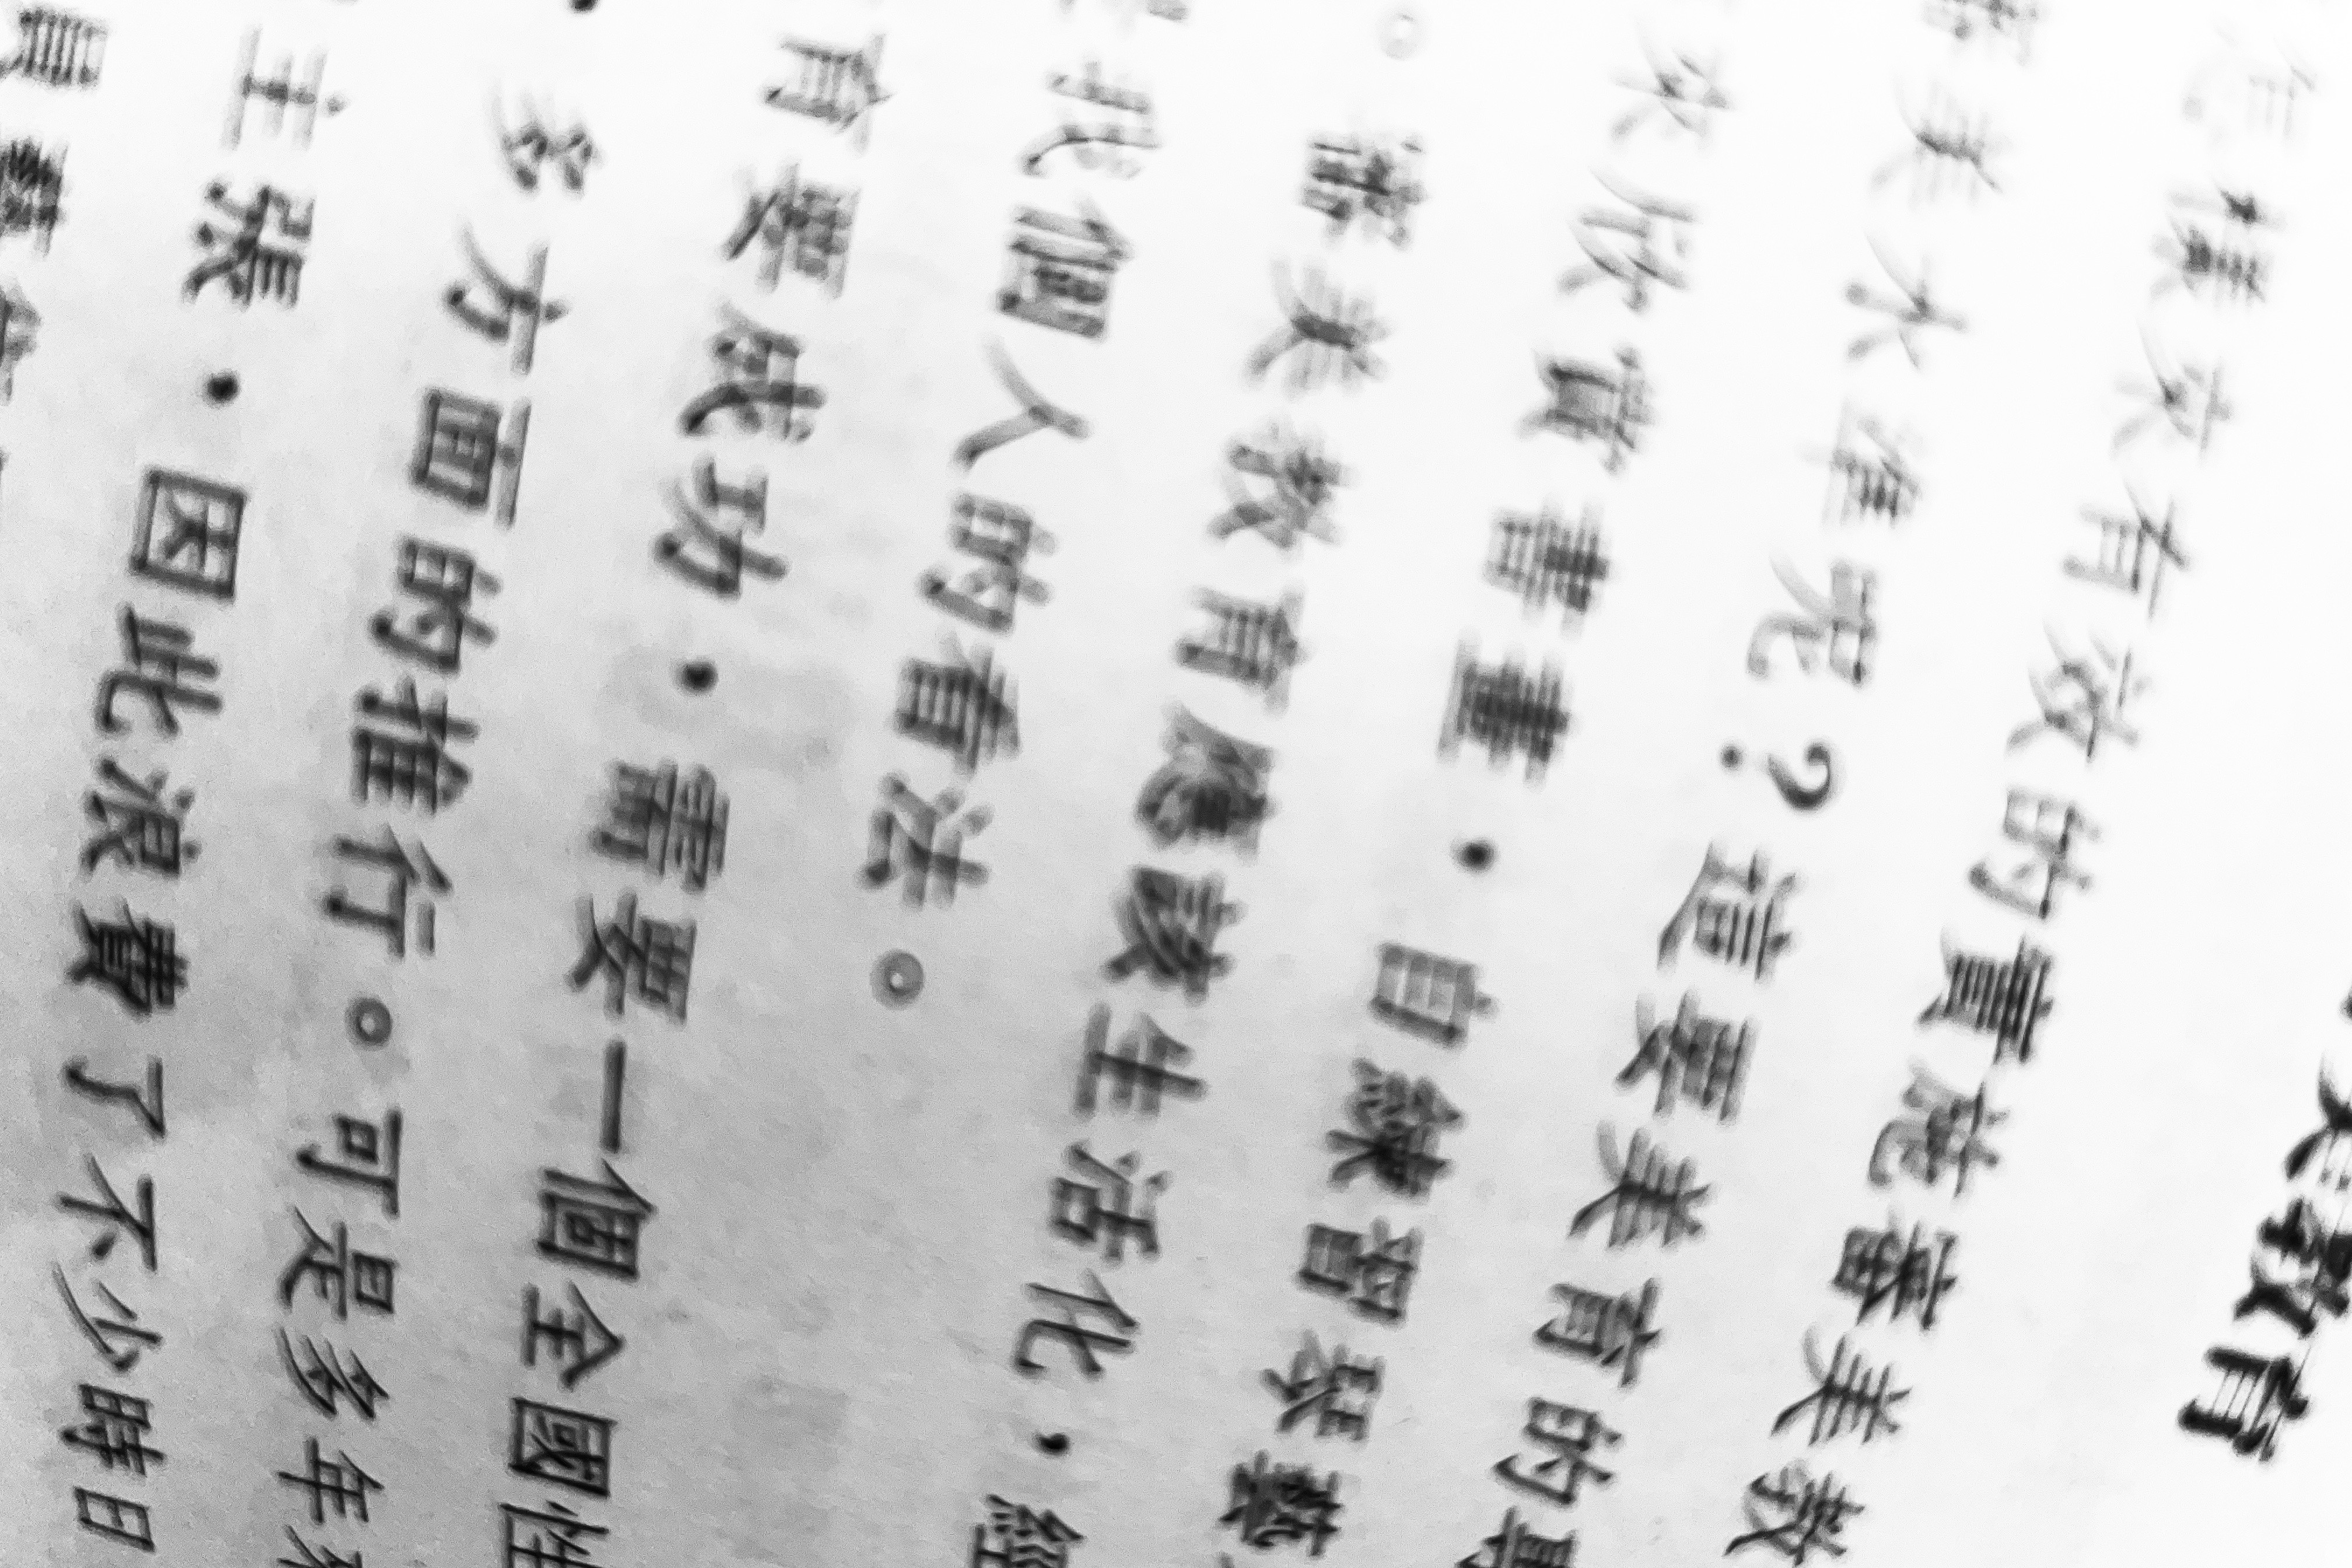 美教育
樣才有效的實施審美教
美水準呢？這要美育的專
欣賞書畫，自練習琴藝
美教育應該生活化，經
我個人的看法。
育要成功，需要一個全國性
多方面的推行。可是多年來
主張，因此浪費了不少時日